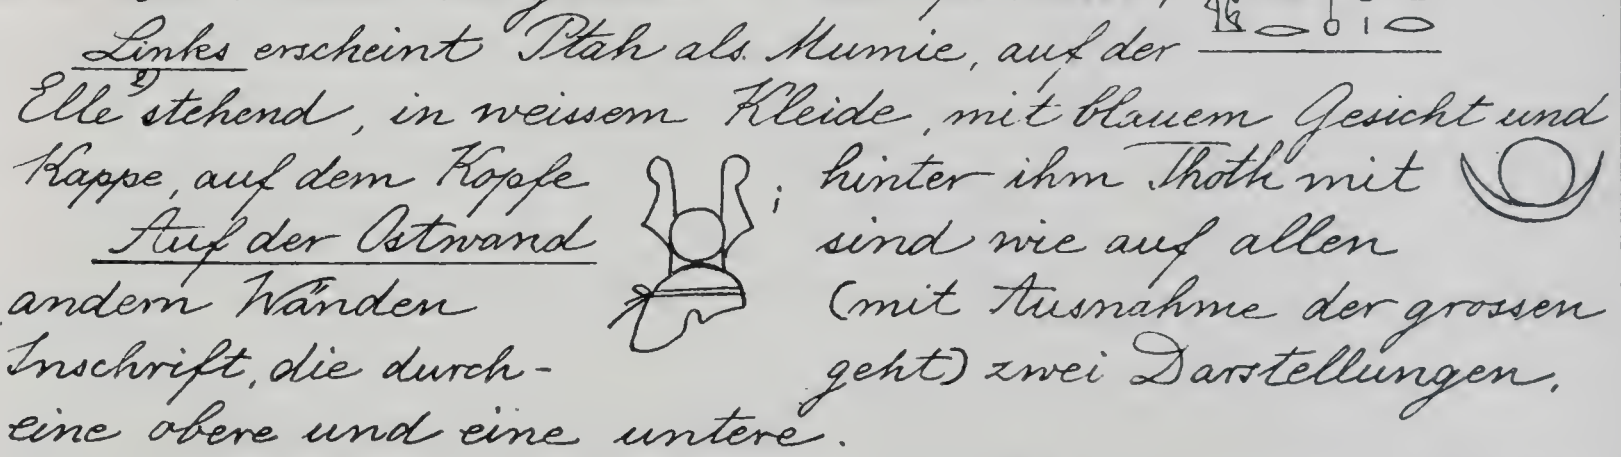 Links erscheint Ptah als Mumie, auf der
Elle 2) stehend, in weissem Kleide, mit blauem Gesicht und
Kappe, auf dem Kopfe ; hinter ihm Thoth mit
Auf der Ostwand sind wie auf allen
andern Wänden (mit Ausnahme der grossen
Inschrift, die durch- geht) zwei Darstellungen,
eine obere und eine untere.